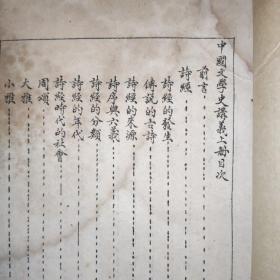 中國文學史講義上部目次
前言
詩經
詩經的發生
傳說的古詩
詩經的來源
詩序與六義
詩經的分類
詩經的年代
詩經時代的社會
周頌
大雅
小雅